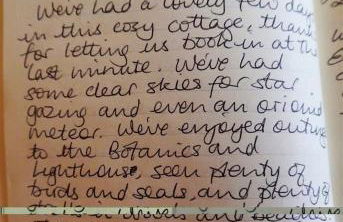 We've had a lovely few days
in this cosy cottage, thanks
for letting us book in at the
last minute. We've had
some clear skies for star
gazing and even an orionid
meteor. We've enjoyed outings
to the Botanics and
Lighthouse, seen plenty of
birds and seals, and plenty of
and